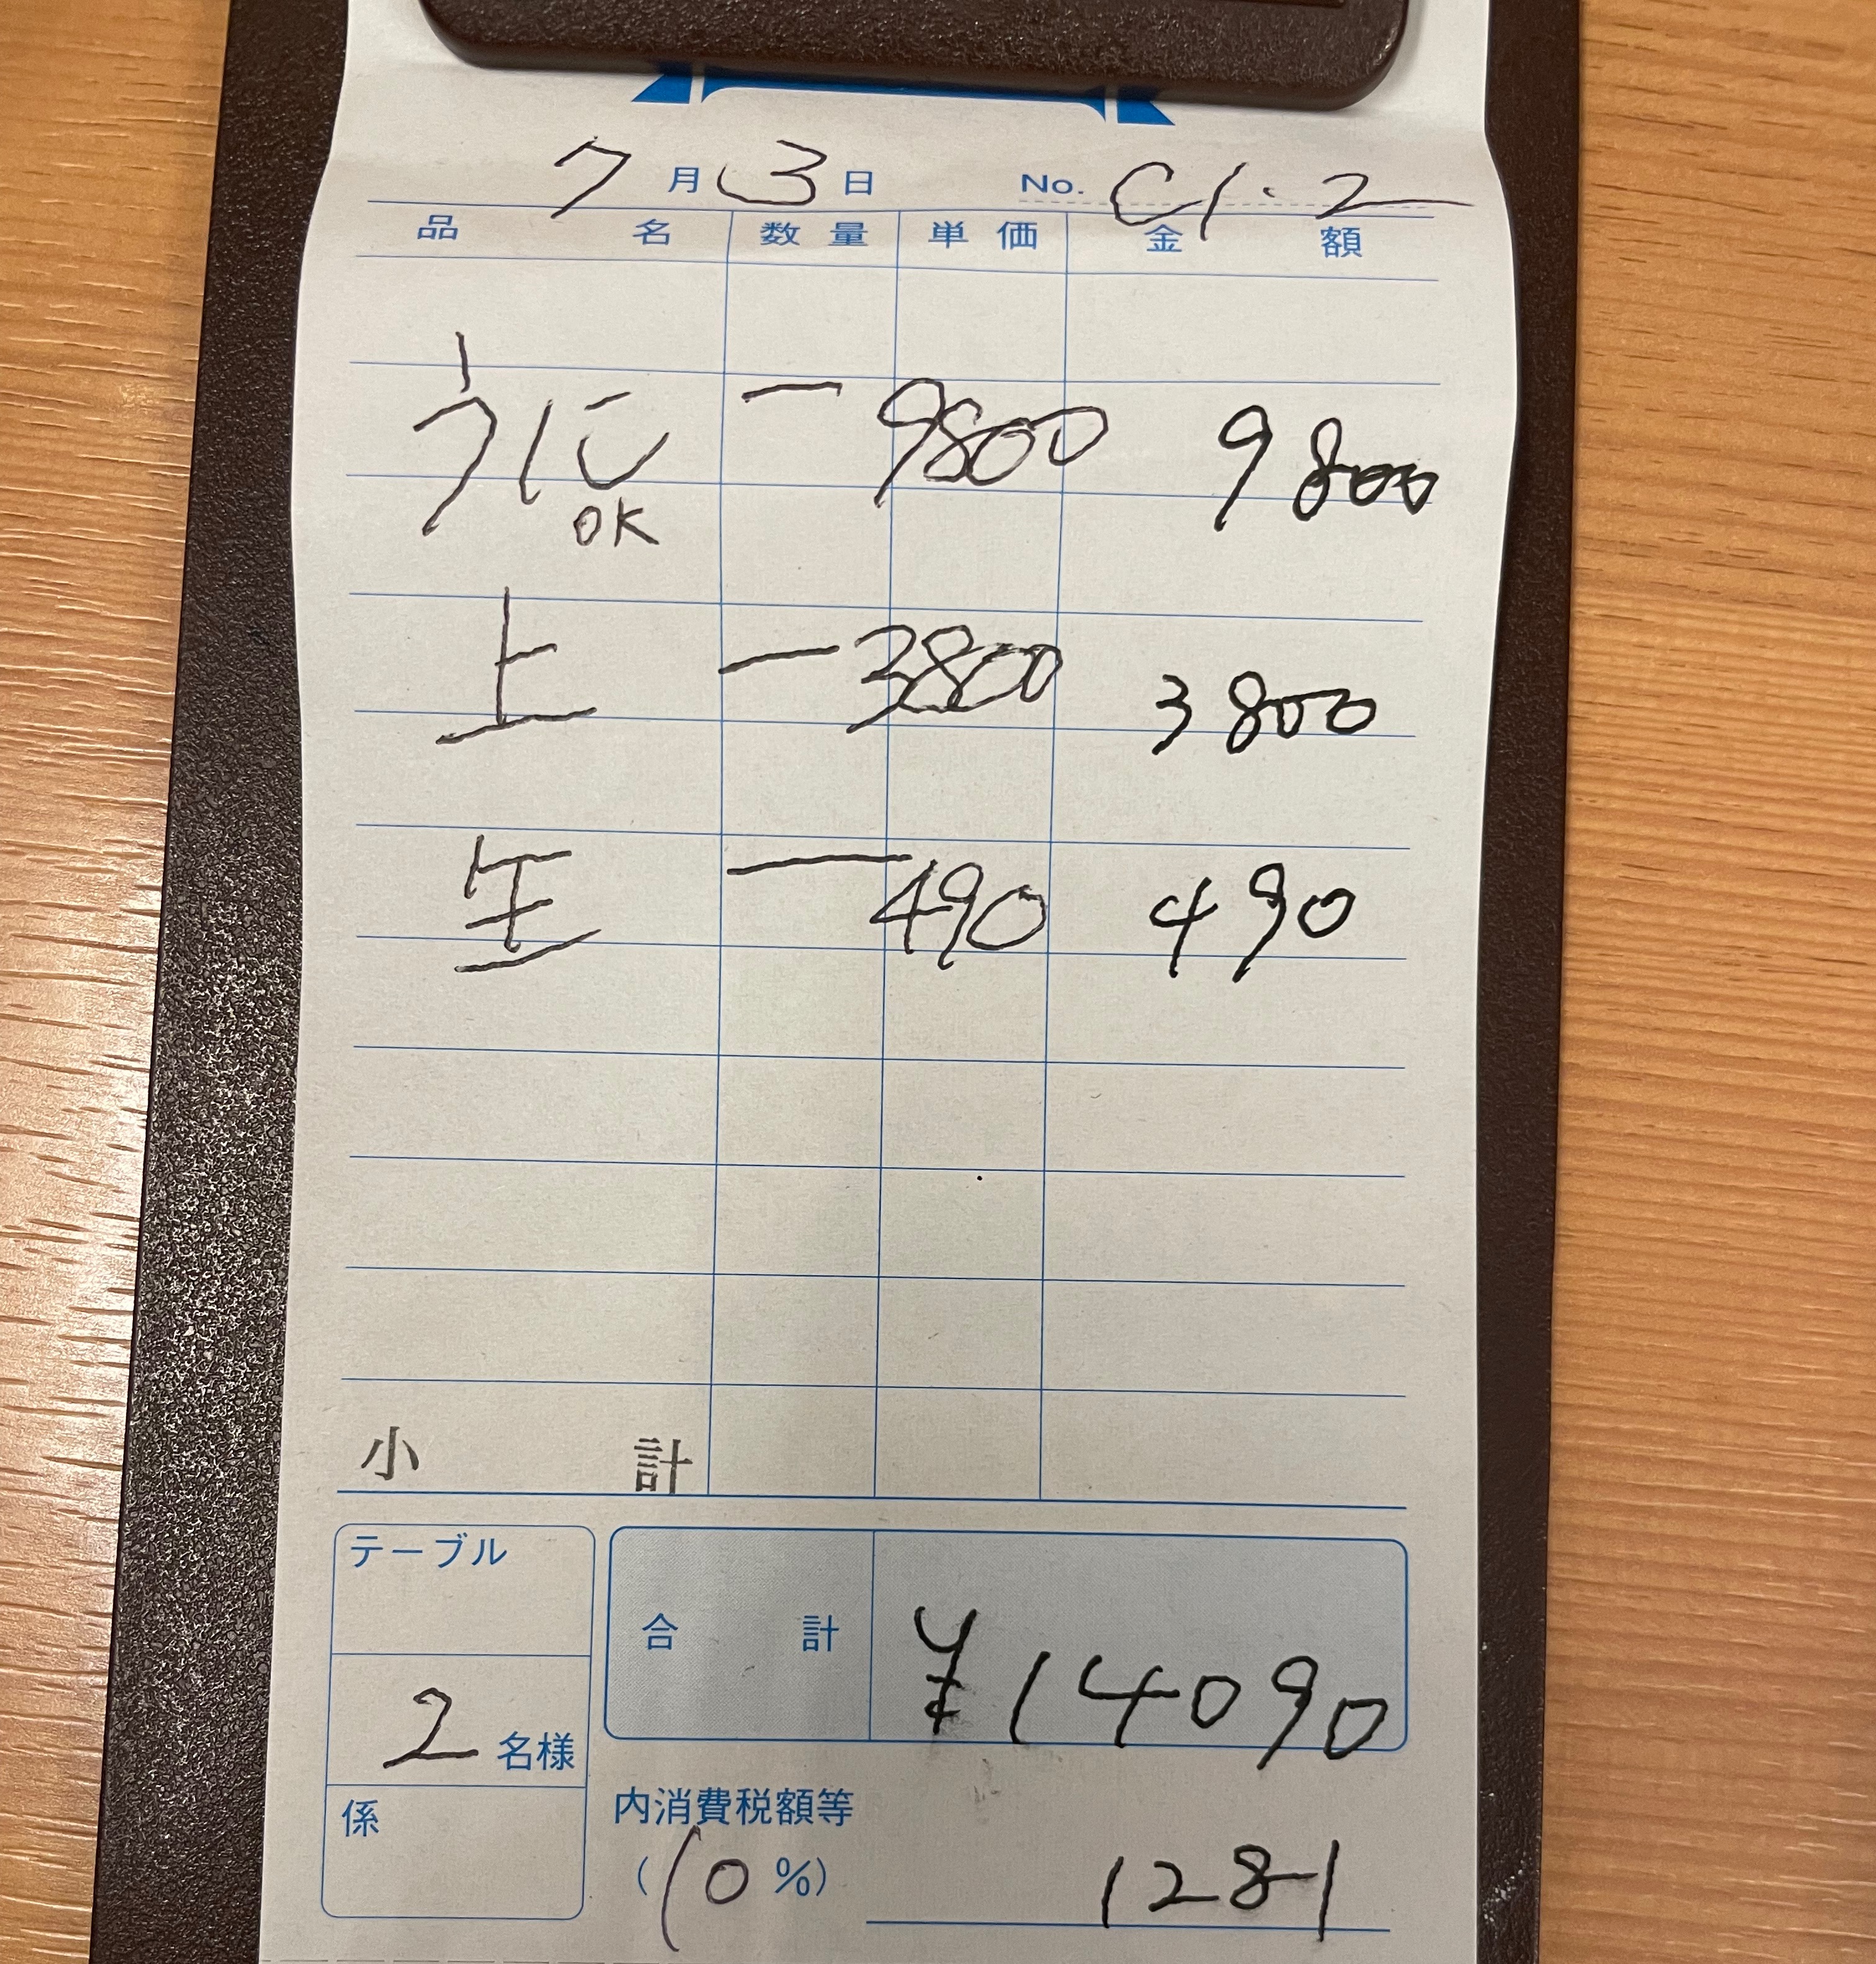 7月3日 No. C1・2
品名 数量 単価 金額
うに 一 9800 9800
OK
上 一 3800 3800
生 一 490 490
小計
テーブル
合計 ¥14090
2名様
係
内消費税額等
(10%) 1281